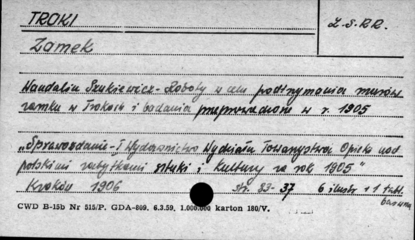 TROKI
Z.S.R.R.
Zamek
Wandalin Szukiewicz - Roboty w celu podtrzymania murów
zamku w Trokach i badania przeprowadzone w r. 1905
„Sprawozdanie - I Wydawnictwo Wydziału Towarzystwa Opieki nad
polskimi zabytkami sztuki i kultury za rok 1905"
Kraków 1906 str. 33-37 6 ilustr + 1 tabl.
barwna
CWD B-15b Nr 515/P. GDA-809. 6.3.59. 1.000.000 karton 180/V.